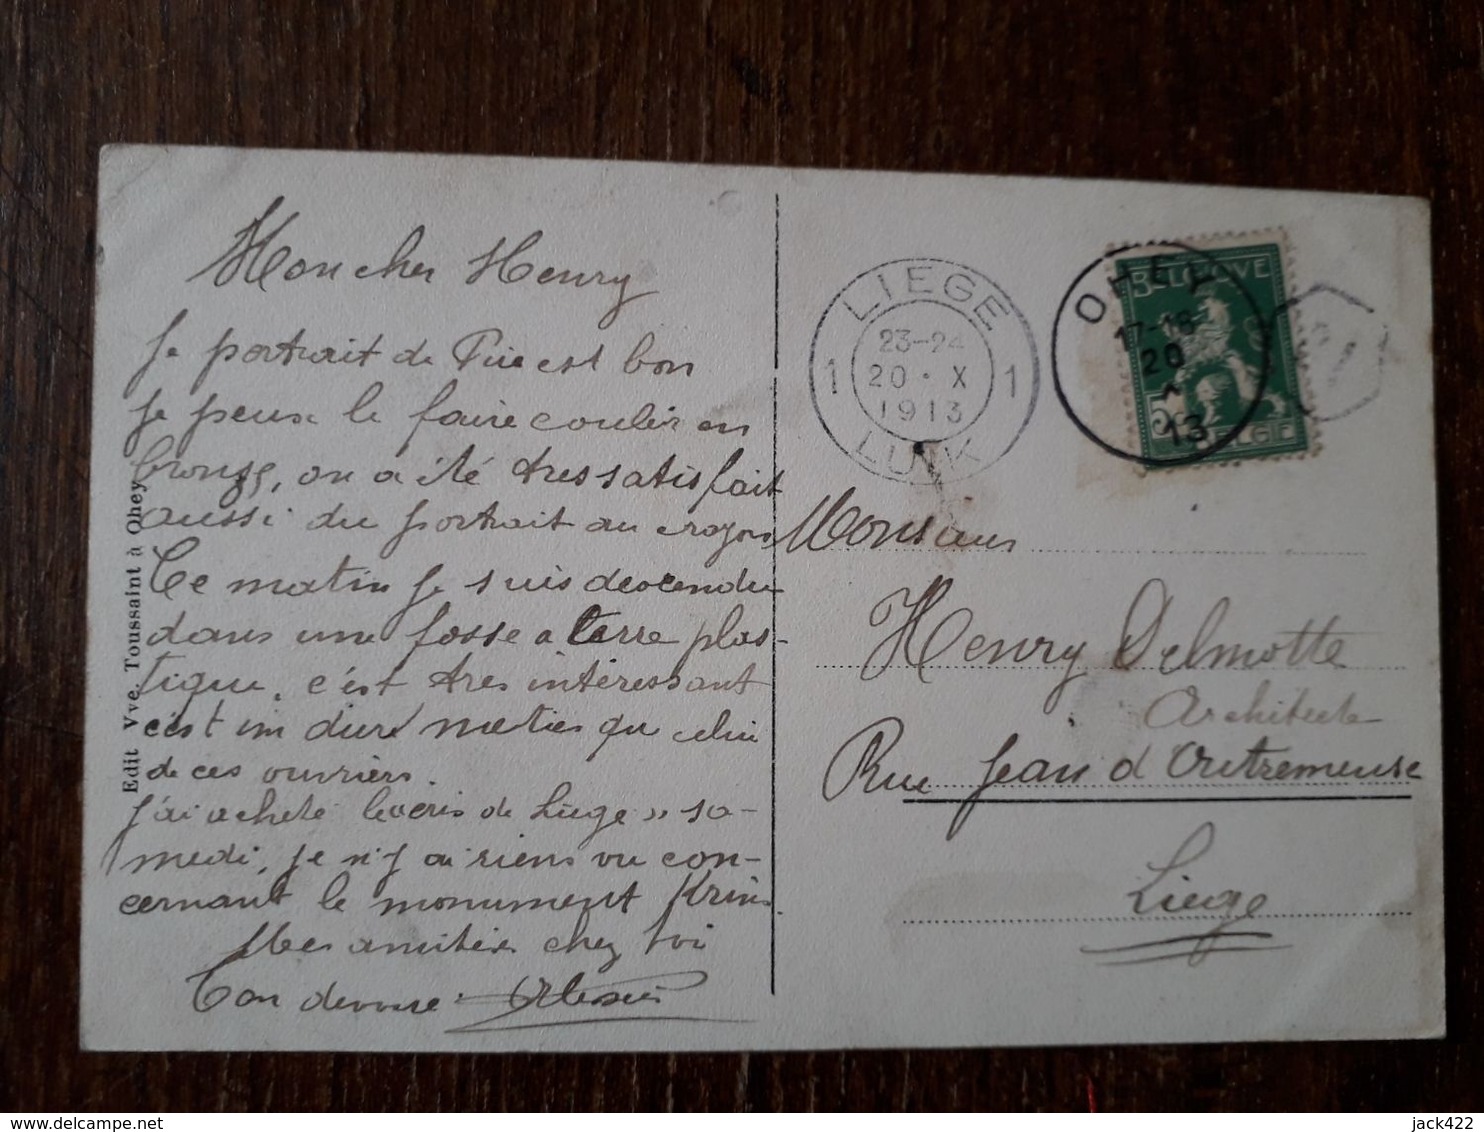 Mon cher Henry
Le portrait de est bon
je peux le faire couler en
bronze, on a été tres satisfait
aussi du portrait au crayon
Ce matin je suis descendu
dans une fosse a terre plas-
tique, c'est tres intéressant
c'est un dure metier que celui
de ces ouvriers.
j'ai acheté le cris de Liège » sa-
medi, je n'y ai riens vu con-
cernant le monument Krins.
Mes amitiés chez toi
Ton
Edit Vve. Toussaint à Ohey
LIEGE
23-24
1 20 · X 1
1913
LUIK
OHEY
17-18
20
X
13
BELGIQUE
5 5
BELGIË
Monsieur
Henry Delmotte
Architecte
Rue Jean d'Outremeuse
Liege
delcampe.net
jack422